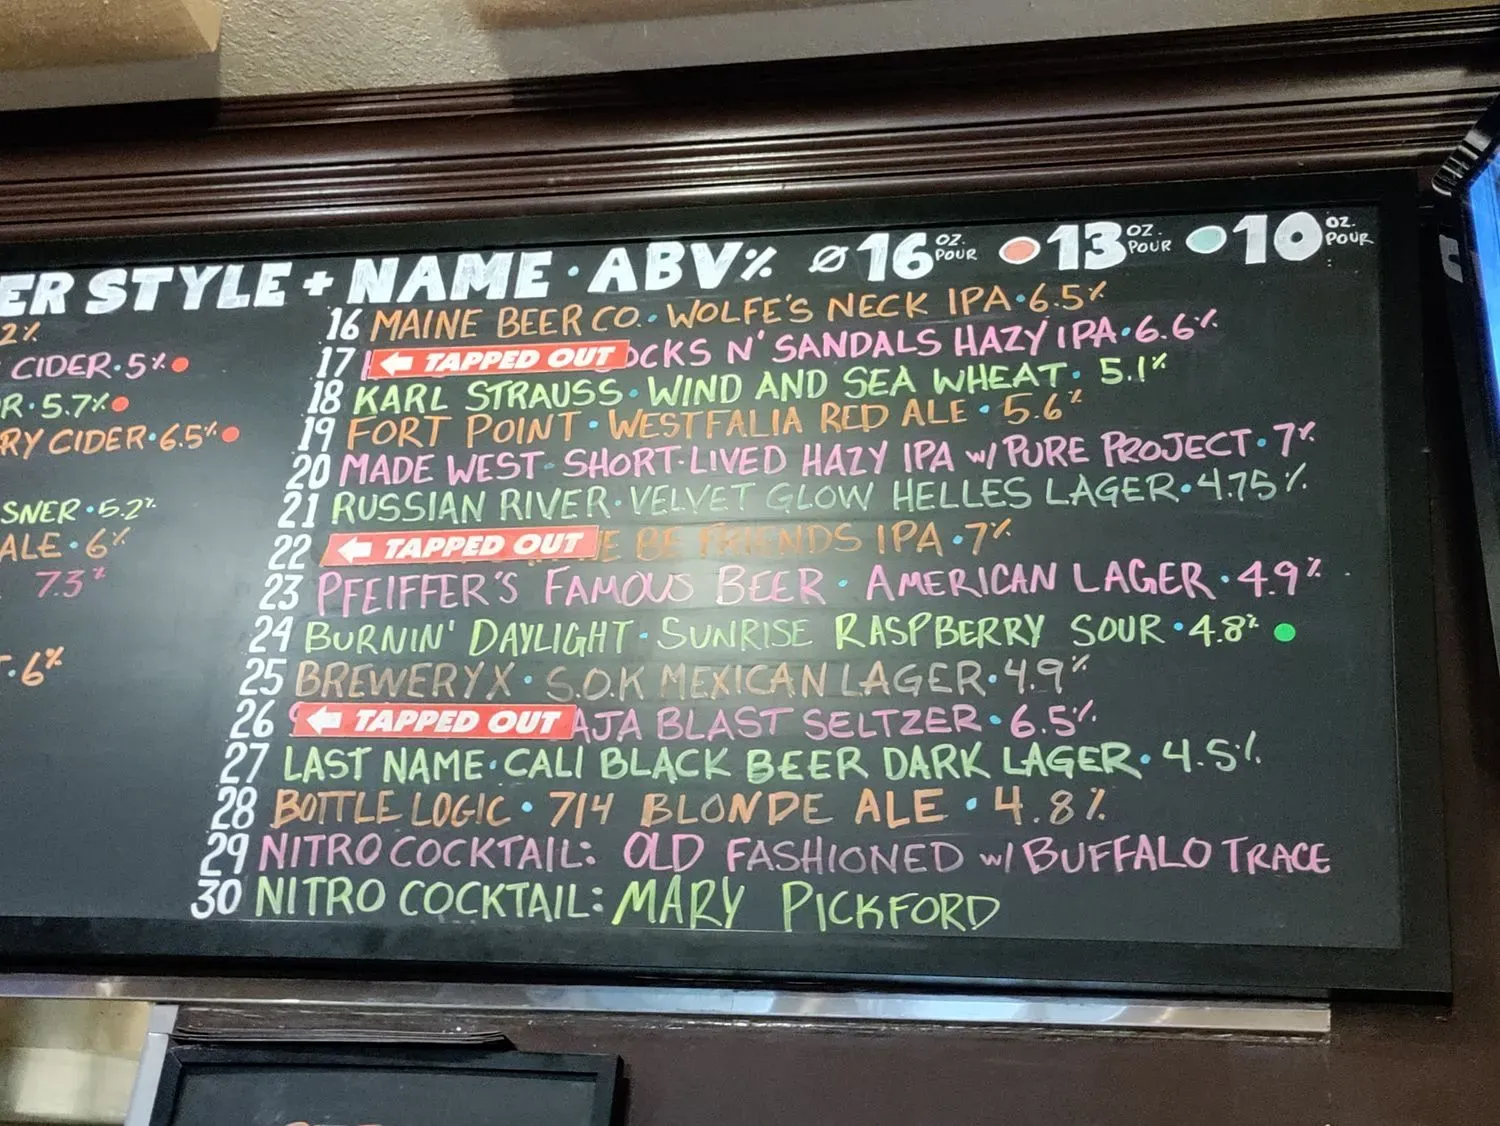 ER STYLE + NAME · ABV% Ø 16 OZ. POUR 13 OZ. POUR 10 OZ. POUR
2%
CIDER · 5%
R · 5.7%
RY CIDER · 6.5%
SNER · 5.2%
ALE · 6%
7.3%
T · 6%
16 MAINE BEER CO. · WOLFE'S NECK IPA · 6.5%
17 ← TAPPED OUT OCKS N' SANDALS HAZY IPA · 6.6%
18 KARL STRAUSS · WIND AND SEA WHEAT · 5.1%
19 FORT POINT · WESTFALIA RED ALE · 5.6%
20 MADE WEST · SHORT-LIVED HAZY IPA w/ PURE PROJECT · 7%
21 RUSSIAN RIVER · VELVET GLOW HELLES LAGER · 4.75%
22 ← TAPPED OUT E BE FRIENDS IPA · 7%
23 PFEIFFER'S FAMOUS BEER · AMERICAN LAGER · 4.9%
24 BURNIN' DAYLIGHT · SUNRISE RASPBERRY SOUR · 4.8%
25 BREWERY X · S.O.K MEXICAN LAGER · 4.9%
26 ← TAPPED OUT AJA BLAST SELTZER · 6.5%
27 LAST NAME · CALI BLACK BEER DARK LAGER · 4.5%
28 BOTTLE LOGIC · 714 BLONDE ALE · 4.8%
29 NITRO COCKTAIL: OLD FASHIONED w/ BUFFALO TRACE
30 NITRO COCKTAIL: MARY PICKFORD